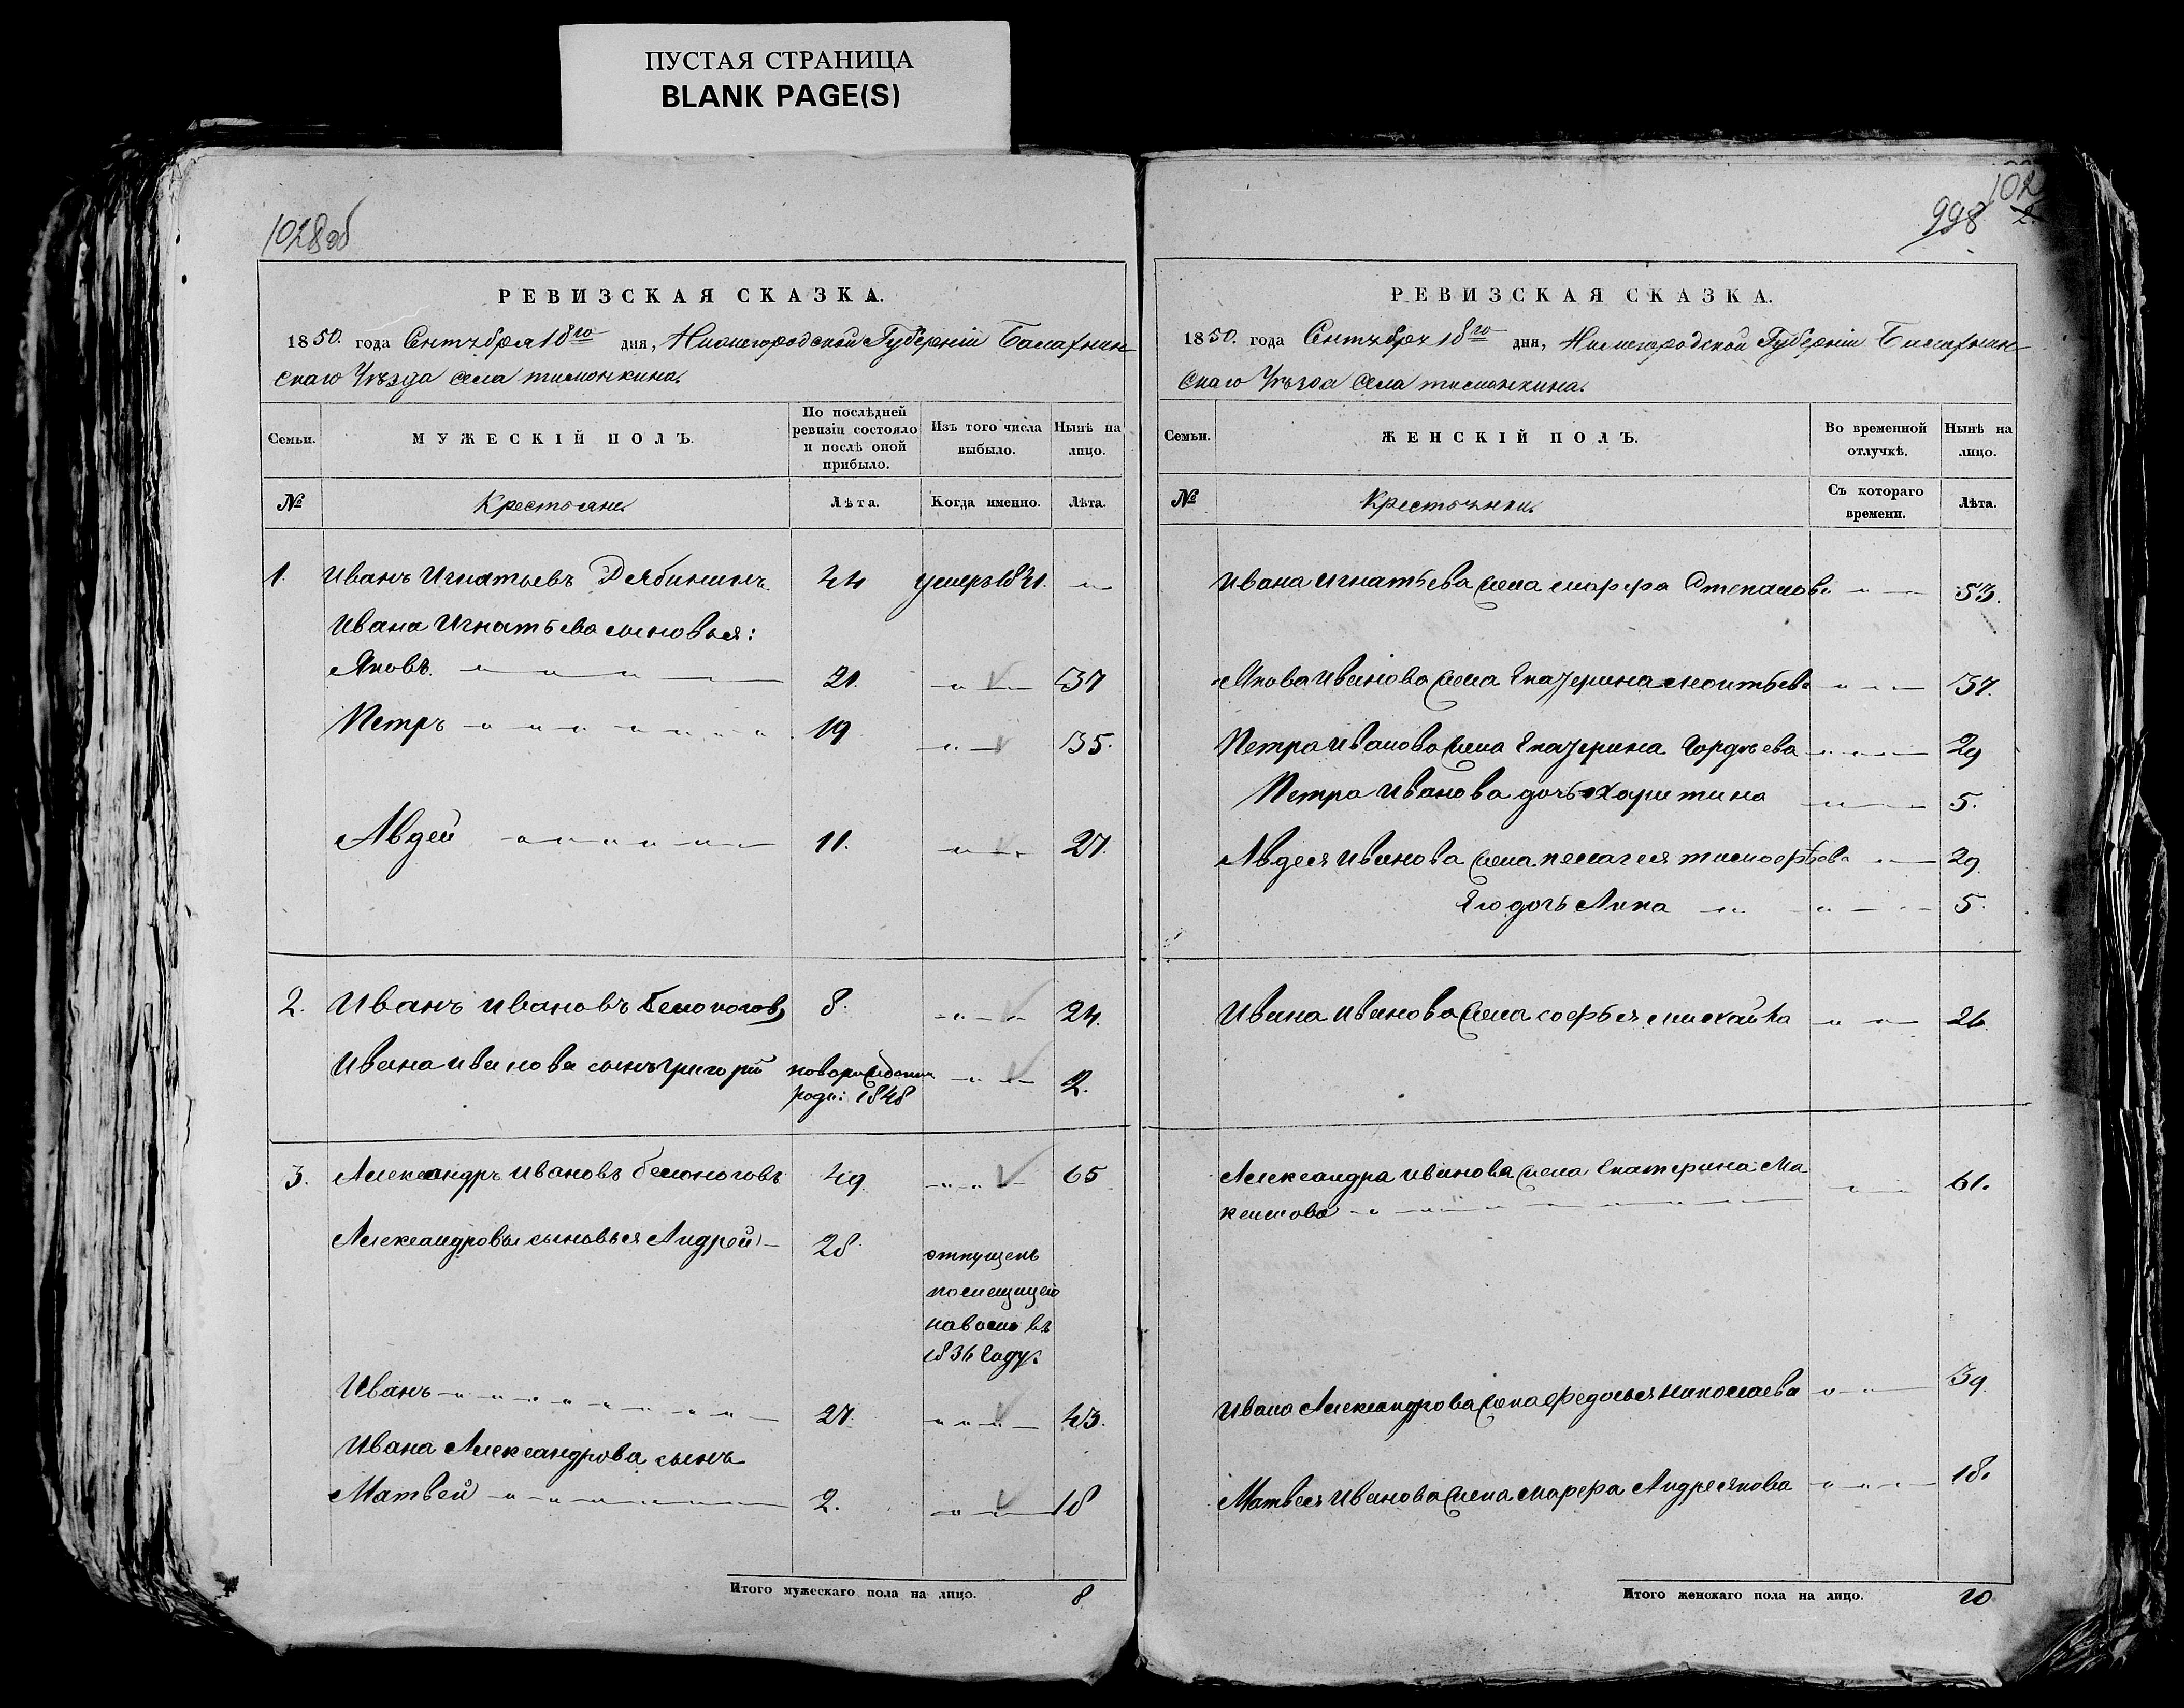 ПУСТАЯ СТРАНИЦА
BLANK PAGE(S)
1028об
РЕВИЗСКАЯ СКАЗКА.
1850. года Сентября 18го дня, Нижегородской Губерніи Балахнин
скаго Уѣзда села тимонкина.
Семьи.
МУЖЕСКІЙ ПОЛЪ.
По послѣдней ревизіи состояло и послѣ оной прибыло.
Изъ того числа выбыло.
Нынѣ на лицо.
№ Крестьяне. Лѣта. Когда именно. Лѣта.
1. Иванъ Игнатьевъ 44 умеръ 1841. —
Ивана Игнатьева сыновья:
Яковъ 21. 37
Петръ 19 35.
Авдей 11. 27.
2. Иванъ Ивановъ белоногов 8. 24.
Ивана иванова сынъ григорій новорожденны 2.
роди: 1848
3. Александръ Ивановъ белоноговъ 49 65
Александровы сыновья Андрей 28. отпущенъ
помещицею
наволю въ
1836 Году.
Иванъ 27. 43.
Ивана Александрова сынъ
Матвей 2. 18
Итого мужескаго пола на лицо. 8
102
998 2.
РЕВИЗСКАЯ СКАЗКА.
1850. года Сентября 18го дня, Нижегородской Губерніи Балахнин
скаго Уѣзда села тимонкина.
Семьи.
ЖЕНСКІЙ ПОЛЪ.
Во временной отлучкѣ.
Нынѣ на лицо.
№ Крестьянки. Съ котораго времени. Лѣта.
Ивана игнатьева жена марфа Степанова 53.
Якова Иванова жена Екатерина леонтьева 37.
Петра Иванова жена Екатерина Гордѣева 29
Петра Иванова дочь Харитина 5.
Авдея Иванова жена пелагея тимофѣева 29.
Его дочь Анна 5.
Ивана Иванова жена софья михайла 26
Александра иванова жена Екатерина Ма 61.
ксимова
Ивана Александрова жена федосья николаева 39
Матвея Иванова жена марфа Андреянова 18.
Итого женскаго пола на лицо. 10